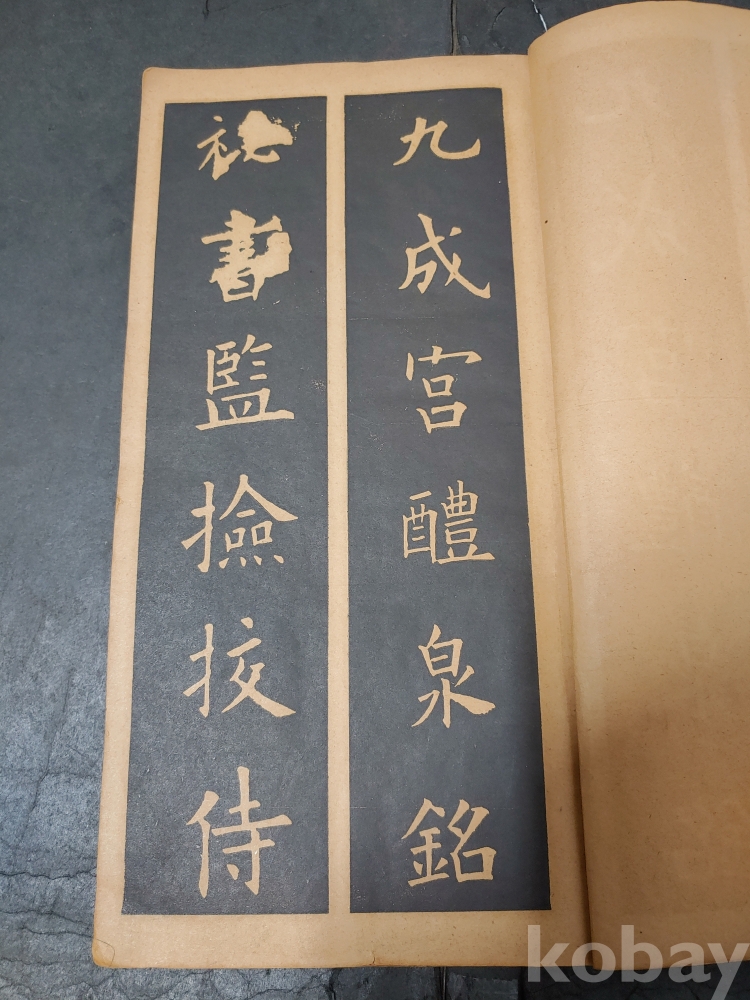 九成宮醴泉銘
祕書監撿挍侍
kobay